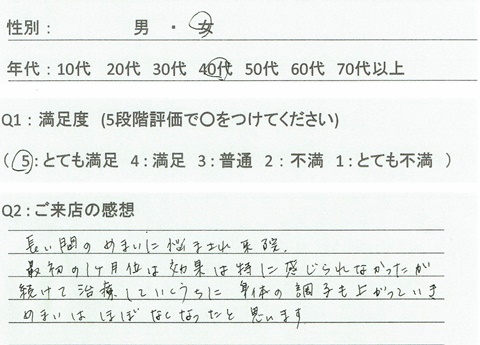 性別： 男 ・ 女
年代：10代 20代 30代 40代 50代 60代 70代以上
Q1：満足度 (5段階評価で〇をつけてください)
（ 5：とても満足 4：満足 3：普通 2：不満 1：とても不満 ）
Q2：ご来店の感想
長い間のめまいに悩まされ来院。
最初の1ヶ月位は効果は特に感じられなかったが
続けて治療していくうちに身体の調子も上がっていき
めまいはほぼなくなったと思います